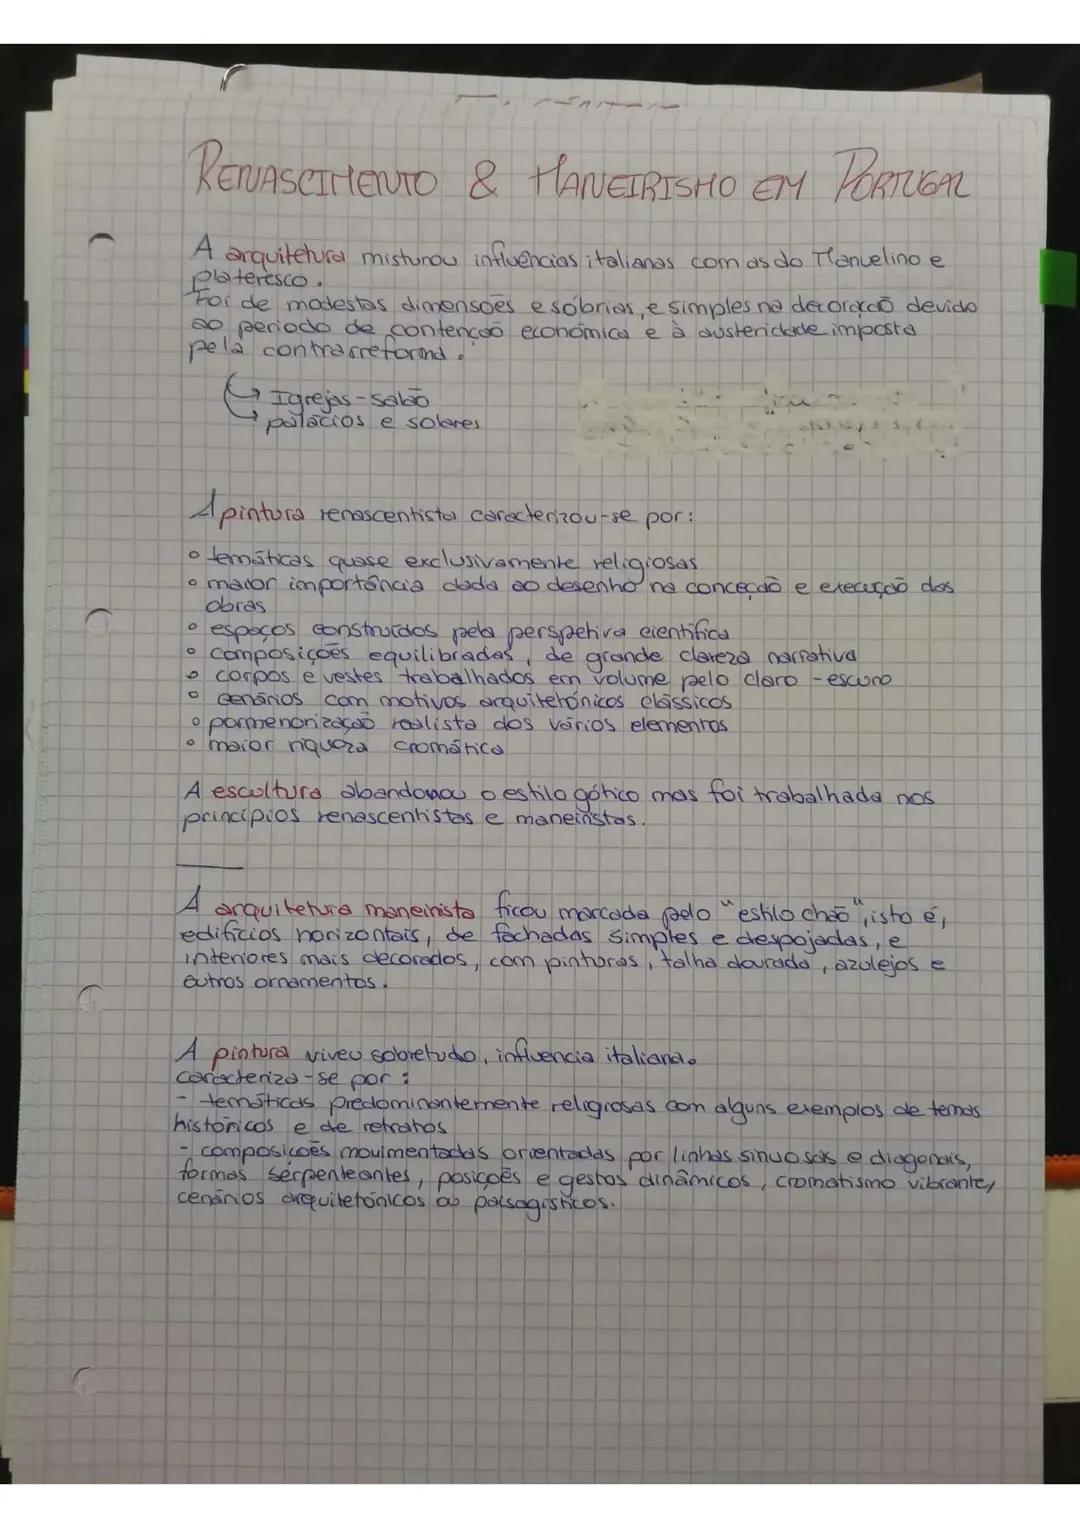 RENASCIMENTO & MANEIRISMO EM PORTUGAL
A arquitetura misturou influências italianas com as do Manuelino e
plateresco.
Foi de modestas dimensões e sóbrias, e simples na decoração devido
ao período de contenção económica e à austeridade imposta
pela contrarreforma.
Igrejas-salão
palácios e solares
A pintura renascentista caracterizou-se por:
temáticas quase exclusivamente religiosas
maior importância dada ao desenho na conceção e execução das
obras
espaços construídos pela perspetiva científica
composições equilibradas, de grande clareza narrativa
corpos e vestes trabalhados em volume pelo claro-escuro
cenários com motivos arquitetónicos clássicos
pormenorização realista dos vários elementos
maior riqueza cromática
A escultura abandonou o estilo gótico mas foi trabalhada nos
princípios renascentistas e maneiristas.
A arquitetura maneirista ficou marcada pelo "estilo chão", isto é,
edifícios horizontais, de fachadas simples e despojadas, e
interiores mais decorados, com pinturas, talha dourada, azulejos e
outros ornamentos.
A pintura viveu sobretudo, influencia italiana.
caracteriza-se por:
- temáticas predominantemente religiosas com alguns exemplos de temas
históricos e de retratos
- composições movimentadas orientadas por linhas sinuosas e diagonais,
formas serpenteantes, posições e gestos dinâmicos, cromatismo vibrante,
cenários arquitetónicos ou paisagísticos.